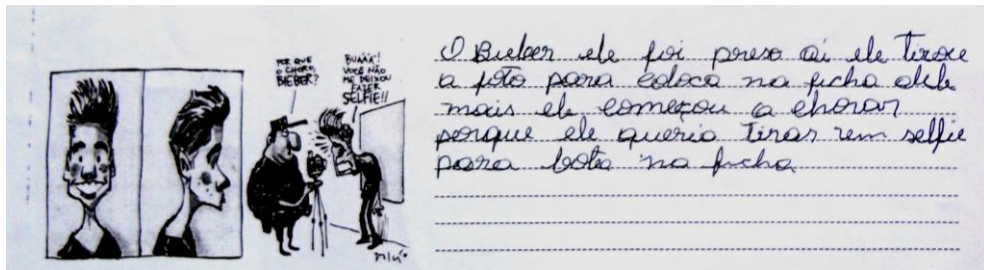 POR QUE
O CHORO,
BIEBER?
BUÁÁÁ!
VOCÊ NÃO
ME DEIXOU
FAZER
SELFIE!!
O Bieber ele foi preso ai ele tirou
a foto para coloca na ficha dele
mais ele começou a chorar
porque ele queria tirar um selfie
para bota na ficha